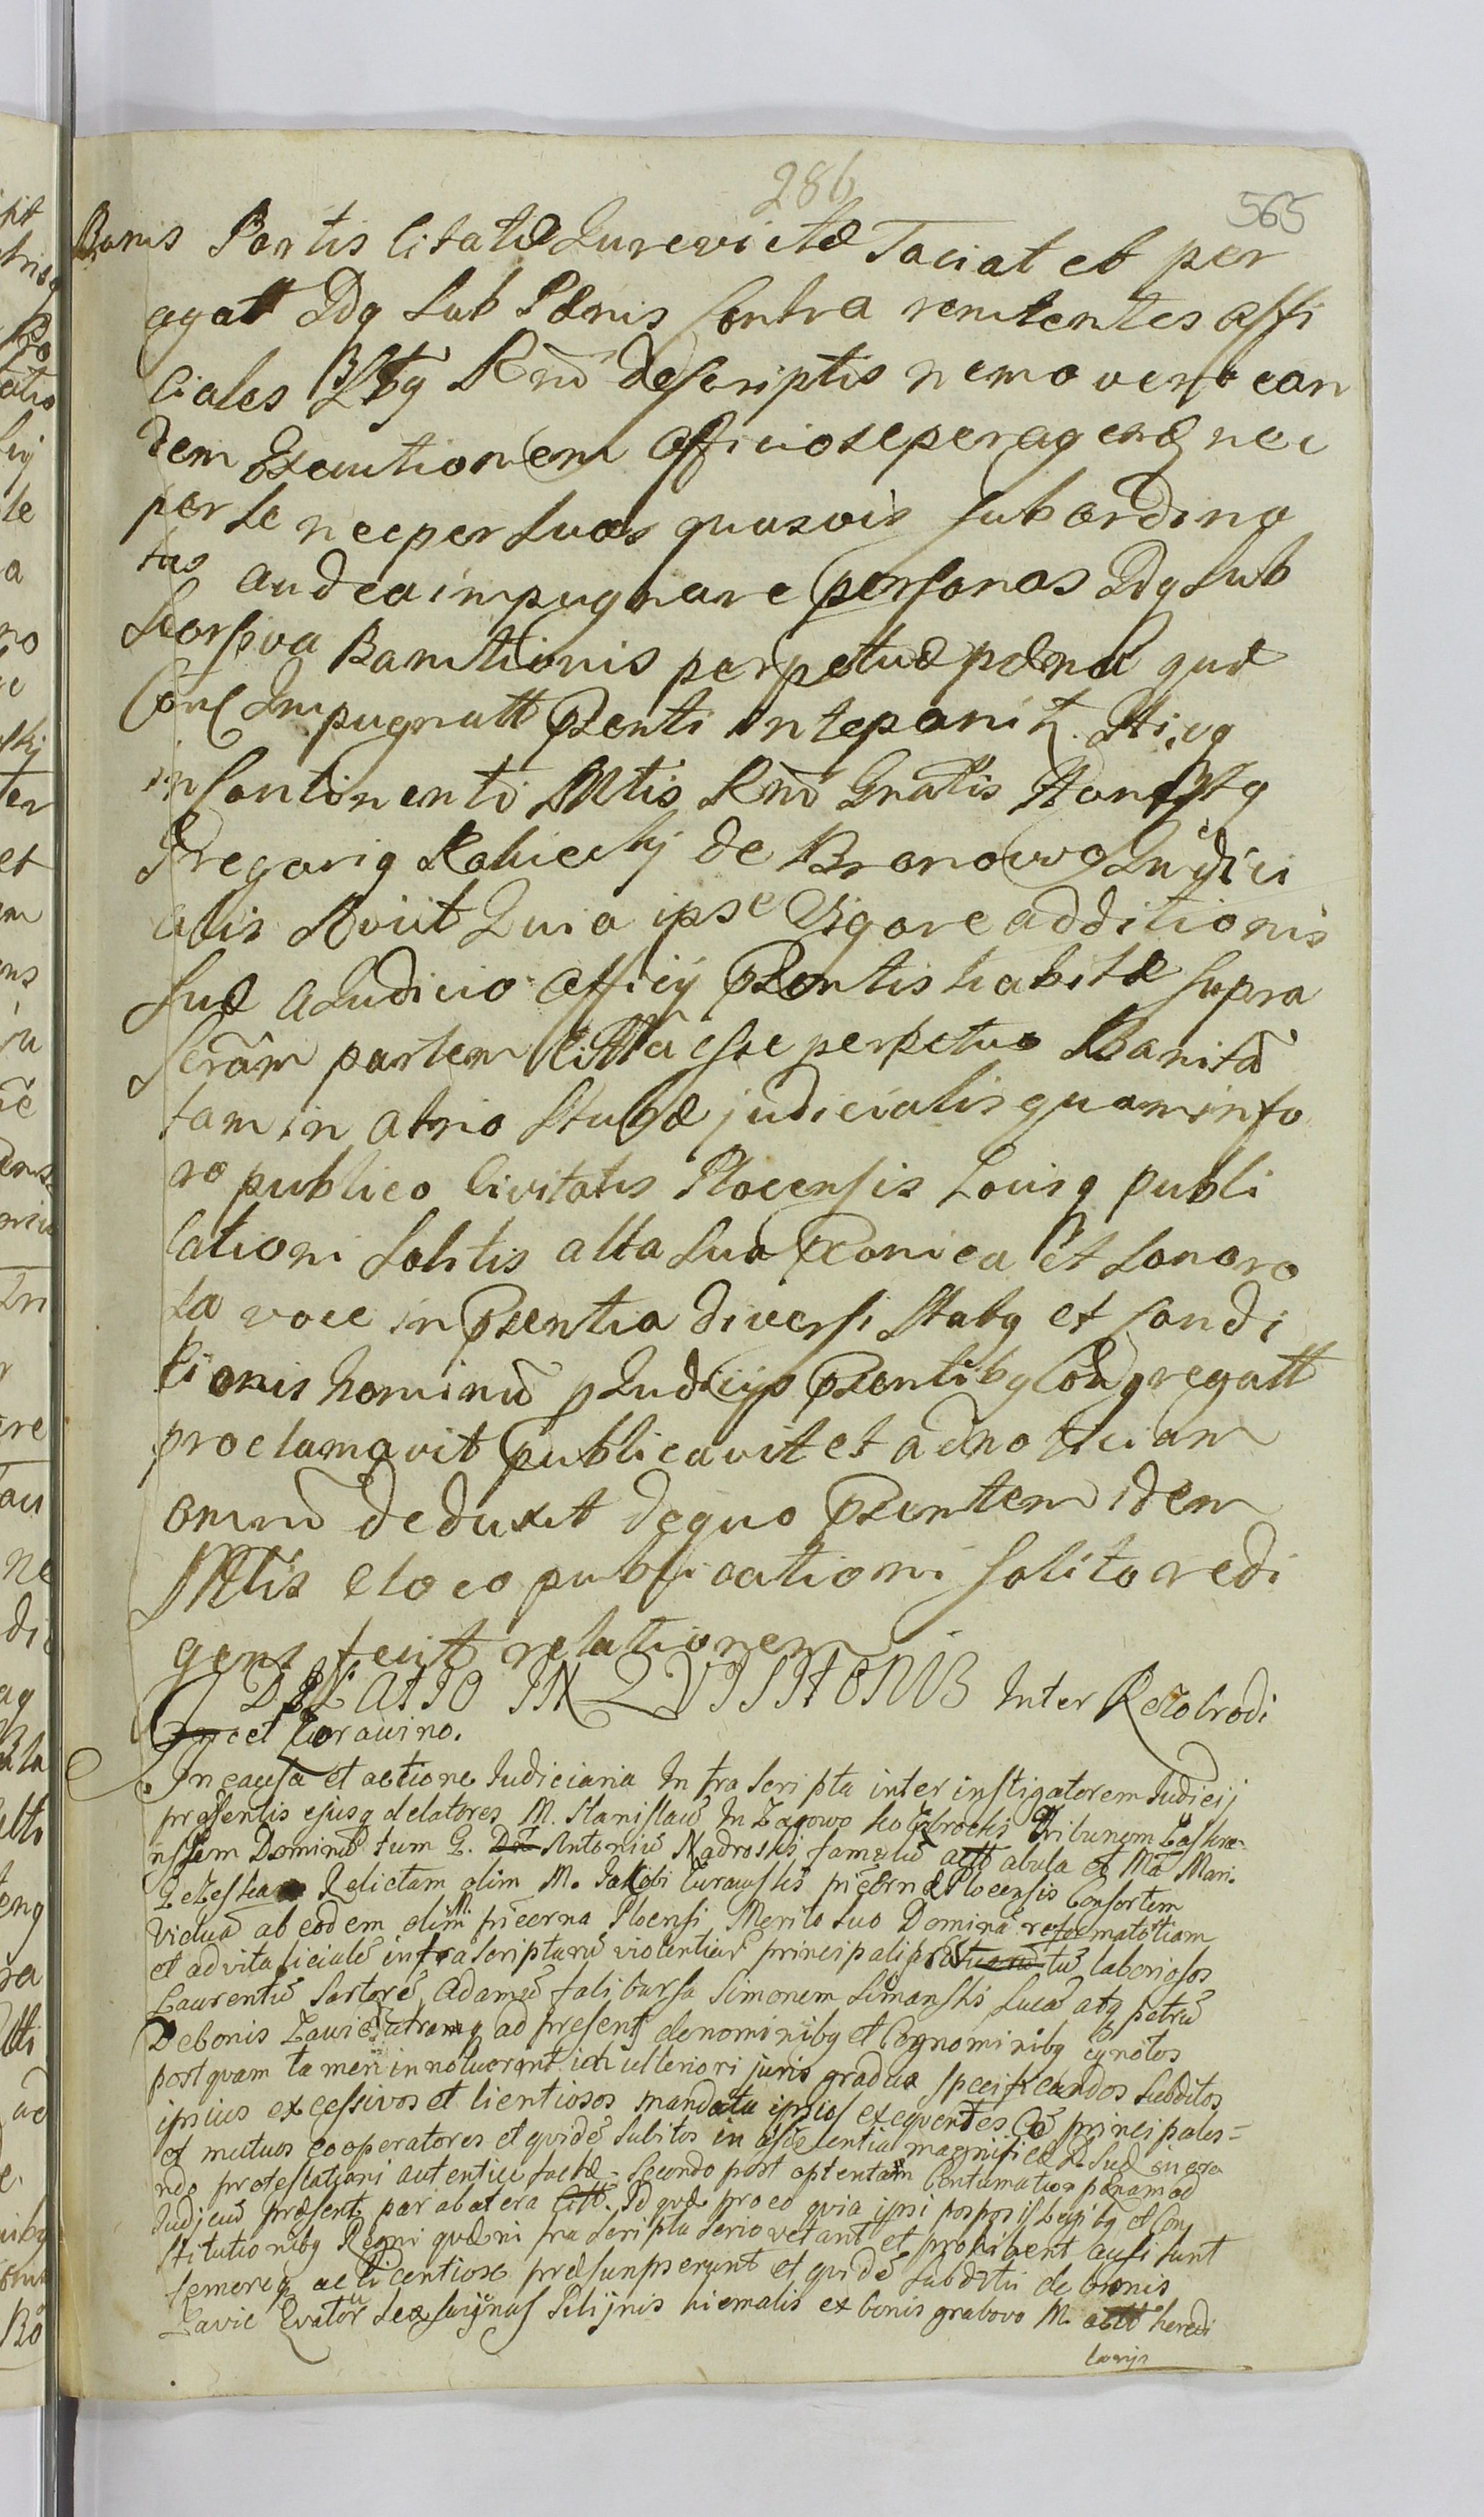 286
565
Bonis Partis Citatæ Jurevictæ Faciat et per
agat Idq sub Pœnis Contra renitentes offi
ciales Lbg Rnī descriptis nemo vero ean
dem Executionem officiose peragend nec
per se nec per suas quasvis subordina
tas audea impugnare personas Idq sub
seorsiva Bannitionis perpetuæ pœna quæ
Cōnt Impugnatt Pzenti interponit
in Continenti Mtis Rnī Gnalis
Gregoriq Rakiecky de Bronowo Judici
alis Quia ipse Vigore additionis
suæ a Judicio officij Pzentis habitæ supra
Scrām partem Cittā esse perpetuo Banitā
tam in atrio stubæ judicialis quam in fo
ro publico Civitatis Plocensis Locisq publi
cationi solitis alta sua et sonoro
sa voce in Pzentia diversi Statq et Condi
tionis hominū p Judicijs Pzentibq Congregatt
proclamavit publicavit et ad no ticiam
omniū deduxit de quo Pzentem idem
Mtis e loco publicationi solito redi
gens fecit relationem
DILATIO INQVISITIONIS Inter Rczobrodi
et Turawino.
In causa et actione Judiciaria Infra scripta inter instigatorem Judicij
præsentis ejusq delatores M. Stanislaū In Zagowo Tribunum
nssem Dominū tum G. Antoniū Nadroski famulū actt abula et Mā Mari.
Relictam olim M. Jakobi Turawski pīcernæ Plocensis Consortem
Viduā ab eodem olim pīcerna Plocensi Marito suo Dominā reformatotiam
et advitaliciālē infra scripturū violentiarū principali laboriosos
Laurentiū Sartorē, Adamū falibursa Simonem Simanski Lucā atq petrū
De bonis Zawic utramq ad præsens denominibq et Cognominibq ignotos
postquam tamen innotuerint in ulteriori juris gradua specificandos subditos
ipsius excessivos et licentiosos mandata ipsius exequentes Cō principales=
et mutuos cooperatores et quidē subitos in assistentia magnificæ D. suæ
ndo protestationi autentice factæ. Secondo post optentam Contumatiæ pœnam ad
Judiciū præsens par abatera Citt. Id quæ pro eo quia ipsi posposis Legibq et Con
stitutionibq Regni quæ ni fra scripta serio vetant et prohibent ausi sunt
temereq ac licentiose præsumpserunt et quidē subditi de bonis
Zavic Quatuor sex Pilijnis hiemalis ex bonis grabovo M. actt heredi
tarijs